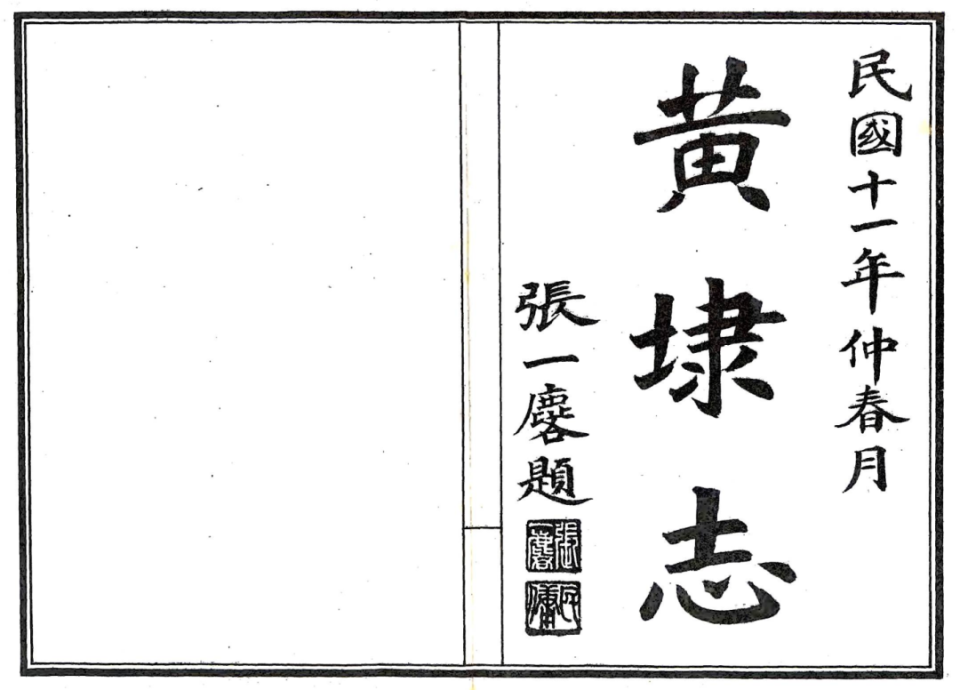 民國十一年仲春月
黄埭志
張一麐題
張一麐
民傭